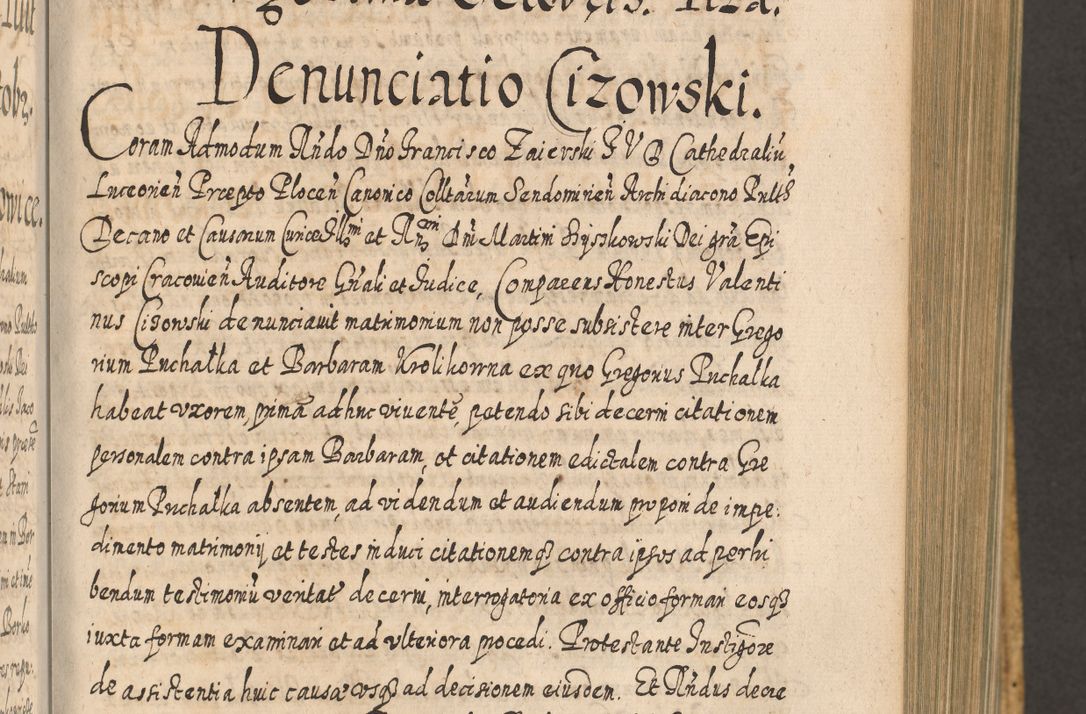 Denunciatio Cizowski.
Coram Admodum Rñdo Dño Francisco Zaierski I V D Cathedraliũ
Luceorień Prcepto Plocen̄ Canonico Colltarum Sendomirien̄ Archidiacono
Decano et Causarum Curiae Illmi et Rmi Dñi Martini Szyszkowski Dei grã Epi
scopi Cracovien̄ Auditore Gñali et Iudice, Comparens Honestus Valenti
nus Cizowski denunciavit matrimonium non posse subsistere inter Grego
rium Puchałka et Barbaram Krolikowna ex quo Gregorius Puchalka
habeat vxorem, primã adhuc viventẽ, petendo sibi decerni citationem
personalem contra ipsam Barbaram, et citationem edictalem contra Gre
gorium Puchałka absentem, ad videndum et audiendum proponi de impe:
dimento matrimonij et testes induci citationemq contra ipsos ad perhi
bendum testimoniũ veritat decerni, interrogatoria ex officio formari eosq
iuxta formam examinari et ad vlteriora procedi. Protestante Instigore
de assistentia huic causae vsq ad decisionem eiusdem. Et Rñdus decre